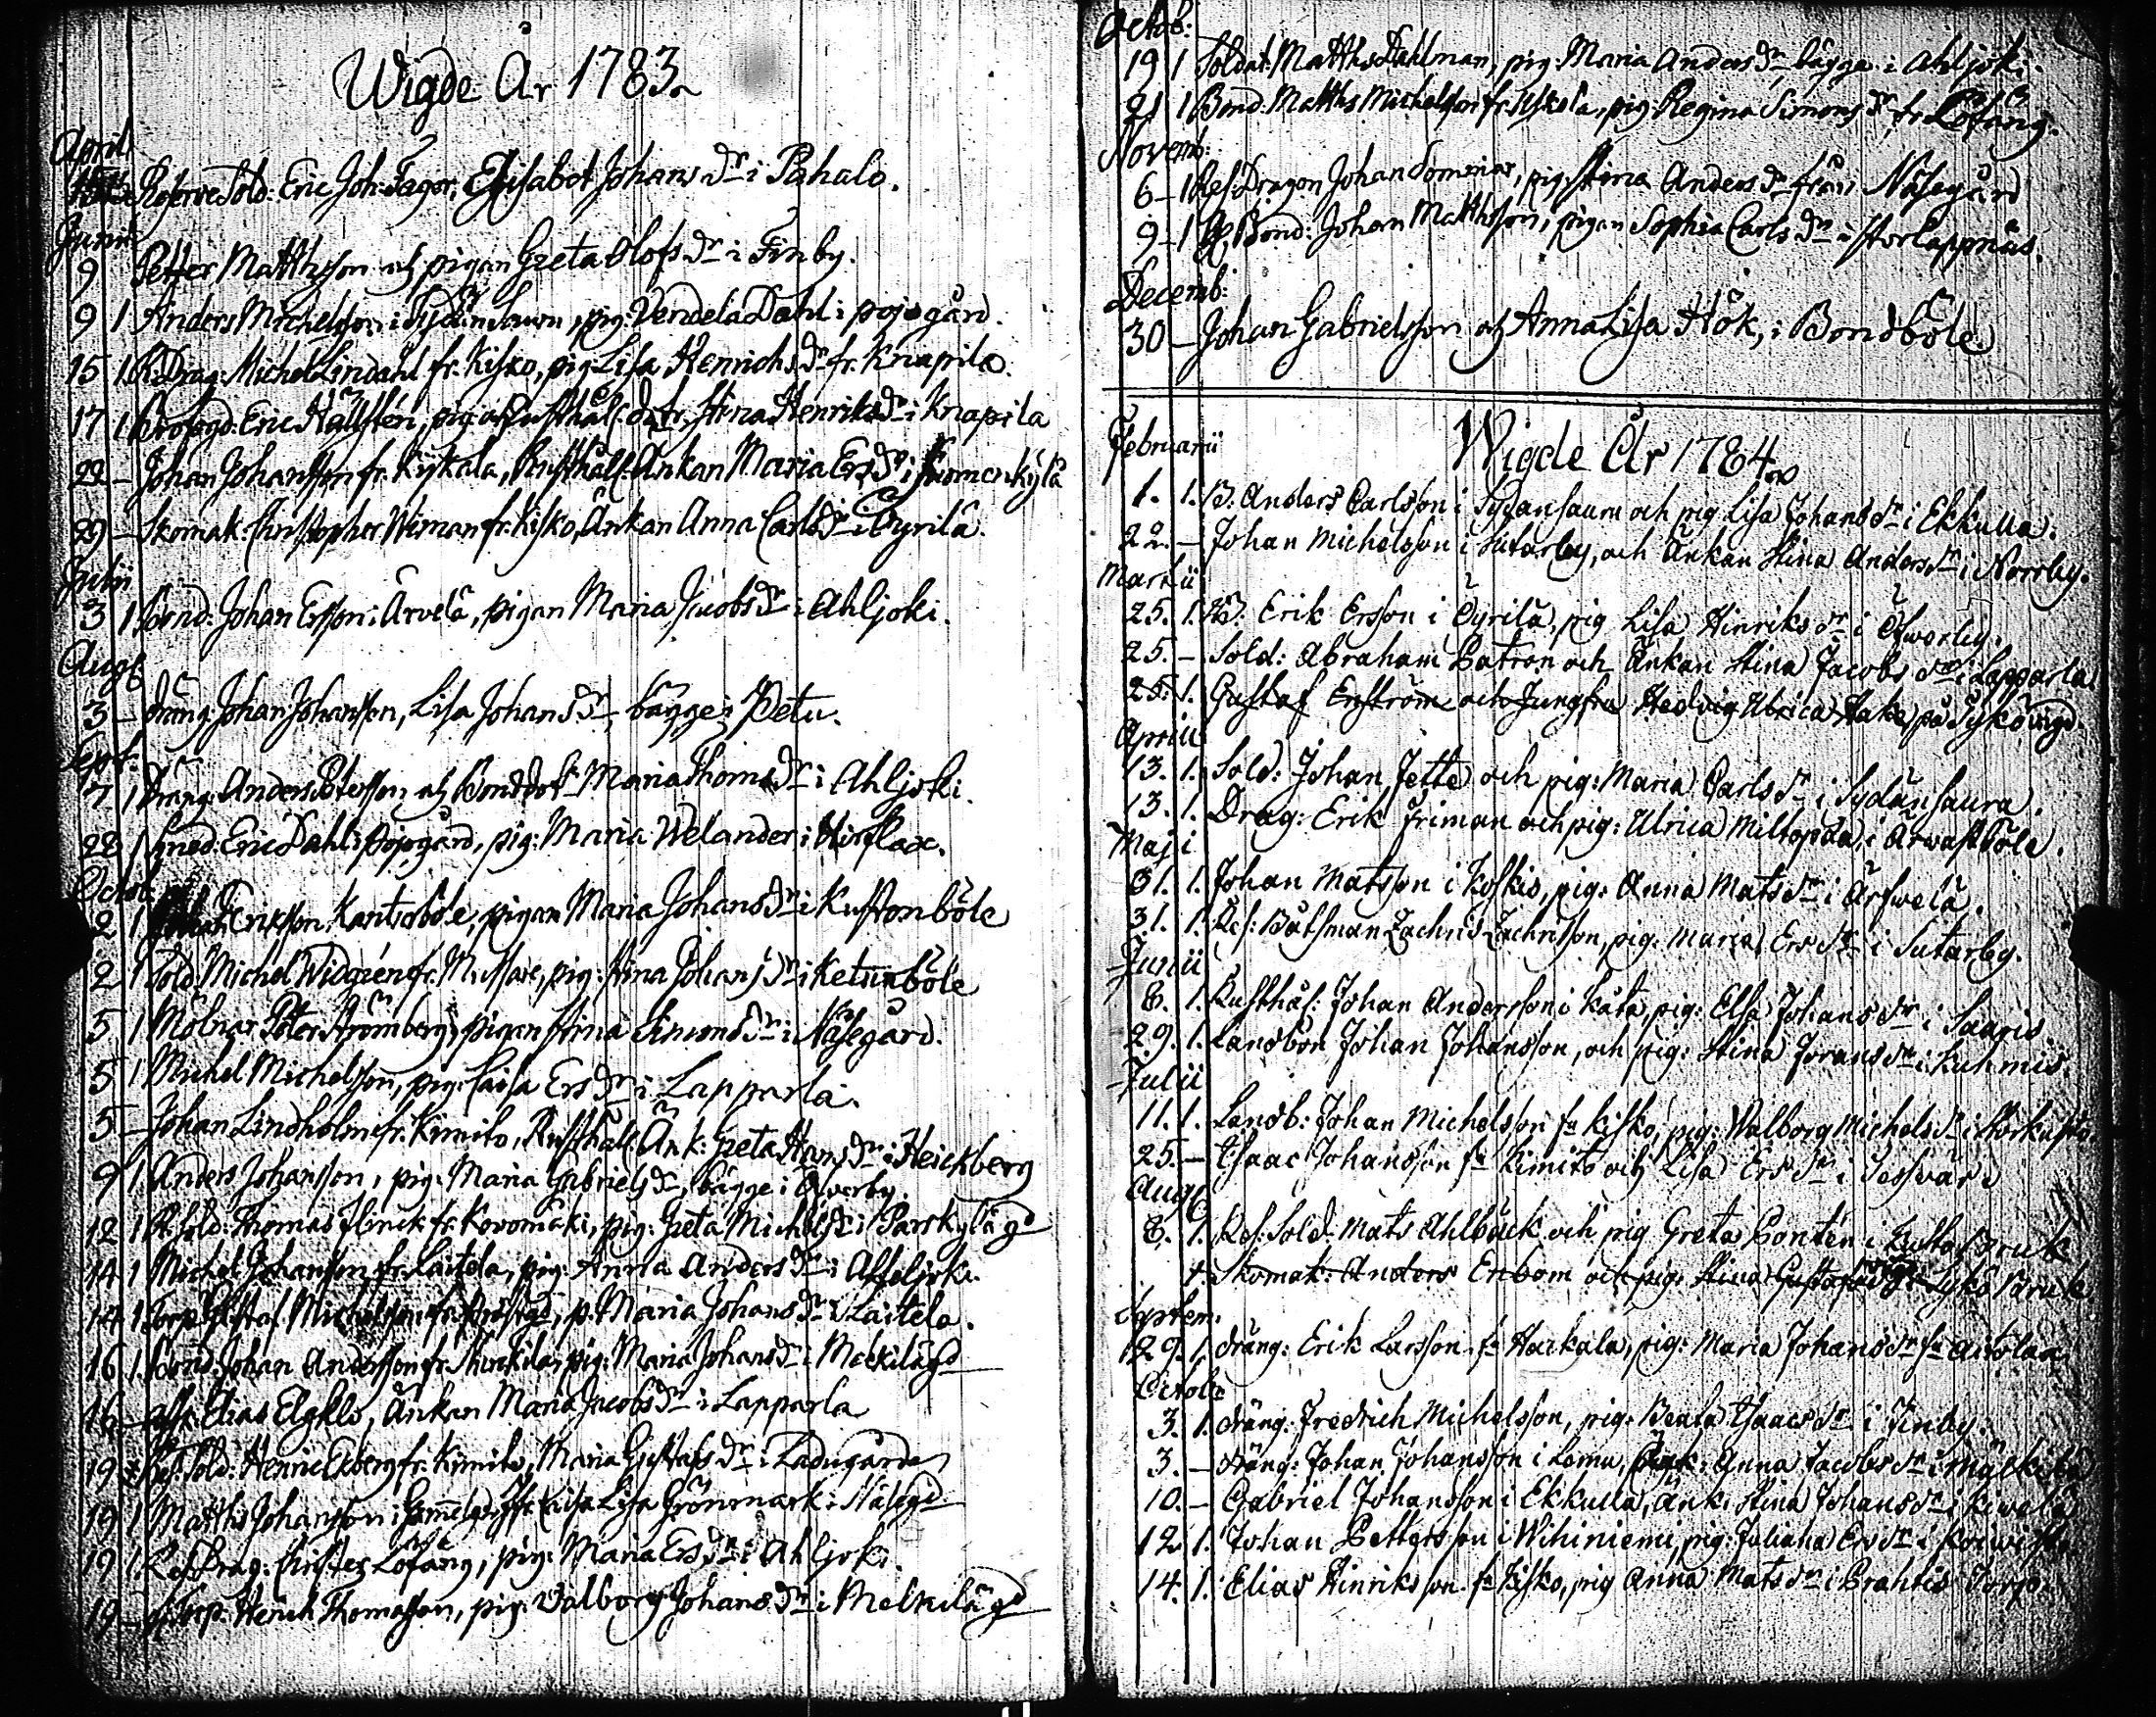 Wigde År 1783
April
Reserve Sold: Eric Joh: Fager, Elisabet Johans dr i Pahalo.
Junii
9 Petter Matthsson och pigan Greta Olofs dr i Finby.
9 1 Anders Michelsson i Sydänlaura, pig: Vendela Dahl i pojogård.
15 1 R. Drag: Michel Lindahl fr. Kisko, pig Lisa Henrichs dr fr. Knapila.
17 1 Eric Hällsten, pig Rusthåll. dotr. Stina Henriks dr i Knapila
22 – Johan Johansson fr. Kiskala, Rusthåll: Änkan Maria Ers dr i
29 – Skomak: Christopher Wiman fr. Kisko, Änkan Anna Carls dr i Öyrilä.
Julii
3 1 Bond: Johan Ersson i Ärvelä, pigan Maria Jacobs dr i Ahljoki.
Aug
3 – dräng Johan Johansson, Lisa Johans dr, bägge i Petu.
Sept:
7 1 Dräng: Anders Petersson och Bonddotr Maria Thoms dr i Ahljoki.
28 1 Eric Dahl i pojogård, pig: Maria Welander i
Octob:
2 1 Ericsson Kantoböle, pigan Maria Johans dr i Kustonböle
2 1 Sold. Michel Widgrén fr. pig: Stina Johans dr i Ketunböle
5 1 Mölnar Peter Strömberg, pigan Stina Simons dr i Näsegård.
5 1 Michel Michelsson, pig: Caisa Ers dr i Lapparla.
5 – Johan Lindholm fr. Kimito, Rusthåll: Änk: Greta Hans dr i Heickberg
9 1 Anders Johansson, pig: Maria Gabriels dr, bägge i Öfverby.
12 1 R. Sold: Thomas Flinck fr. Kovomäki, pig: Greta Michels dr i Parskylä gd
14 1 Michel Johansson fr. Laitela, pig: Anna Anders dr i Ahljoki.
14 1 Torp: Gustaf Michelsson fr. p. Maria Johans dr i Laitela.
16 1 Bond: Johan Andersson fr. pig: Maria Johans dr i Melkilä gd
16 – Elias Elgklo, Änkan Maria Jacobs dr i Lapparla
19 Res. Sold: Henric Ekberg fr. Kimito, Maria Gustafs dr i Ladugården
19 1 Matths Johansson i Caisa Lisa Grönmark i Näsegd
19 1 Res. Drag: Christer Löfäng, pig: Maria Ers dr i Ahljoki.
19 – Torp. Henrich Thomasson, pig: Valborg Johans dr i Melkilä gd
Octob:
19 1 Soldat: Matths Dahlman, pig: Maria Anders dr bägge i Ahljoki.
21 1 Bond: Matths Michelsson fr. Uskela, pig: Regina Simons dr fr. Löfäng.
Novemb:
6 – 1 Res. Dragon Johan Sommar, pig: Stina Anders dr från Näsegård
9 – 1 Bond: Johan Matthsson, pigan Sophia Carls dr i Storlappnäs.
Decemb:
30 – Johan Gabrielsson och Anna Lisa Hök, i Bondböle.
Wigde År 1784
Februarii
1. 1. B: Anders Carlsson i Sydänlaura och pig: Lisa Johans dr i Ekkulla.
22. – Johan Michelsson i Sutarby, och Änkan Stina Anders dr i Norrby.
Martii
25. 1. B: Erik Ersson i Öyrilä, pig Lisa Hinriks dr i Öfwerby.
25. – Sold: Abraham Patron och Änkan Stina Jacobs dr i Lapparla
25. 1. Gustaf Enström och Jungfru Hedvig Ulrica Hake på Tykö
Aprill
13. 1. Sold: Johan Jette och pig: Maria Carls dr i Sydänlaura.
13. 1. Drag: Erik Friman och pig: Ulrica Miltopaa i Arwastböle.
Maji
31. 1. Johan Matsson i Koskis, pig: Anna Mats dr i Ärfwelä.
31. 1. Res: Båtsman Zachris Zachrisson, pig: Maria Ers dr i Sutarby.
Junii
6. 1. Rusthål: Johan Andersson i Kåta, pig: Elsa Johans dr i Saaris
29. 1. Landbon Johan Johansson, och pig: Stina Jorans dr i Kuhmis.
Julii
11. 1. Landb: Johan Michelsson fr Kisko, pig: Walborg Michels dr i
25. – Isaac Johansson fr Kimito och Lisa Ers dr i Tessvär
Aug
8. 1. Res: Sold: Mats Ahlbäck och pig Greta Pontén i Kulla Bruk
1. Skomak: Anders Enbom och pig: Stina Gustafs dr Tykö Bruk
Septem.
29. 1. dräng: Erik Larsson fr Harkala, pig: Maria Johans dr fr Aistolaa
October
3. 1. dräng: Fredrich Michelsson, pig: Beata Isaacs dr i Finby.
3. – dräng: Johan Johansson i Lemu, Änk: Anna Jacobs dr i Mälkilä
10. – Gabriel Johansson i Ekkulla, Änk: Stina Johans dr i Kiwelä
12. 1. Johan Pettersson i Wihiniemi, pig: Juliana Ers dr i Koiwisto
14. 1. Elias Hinriksson fr Kisko, pig Anna Mats dr i Prahtis Torp.